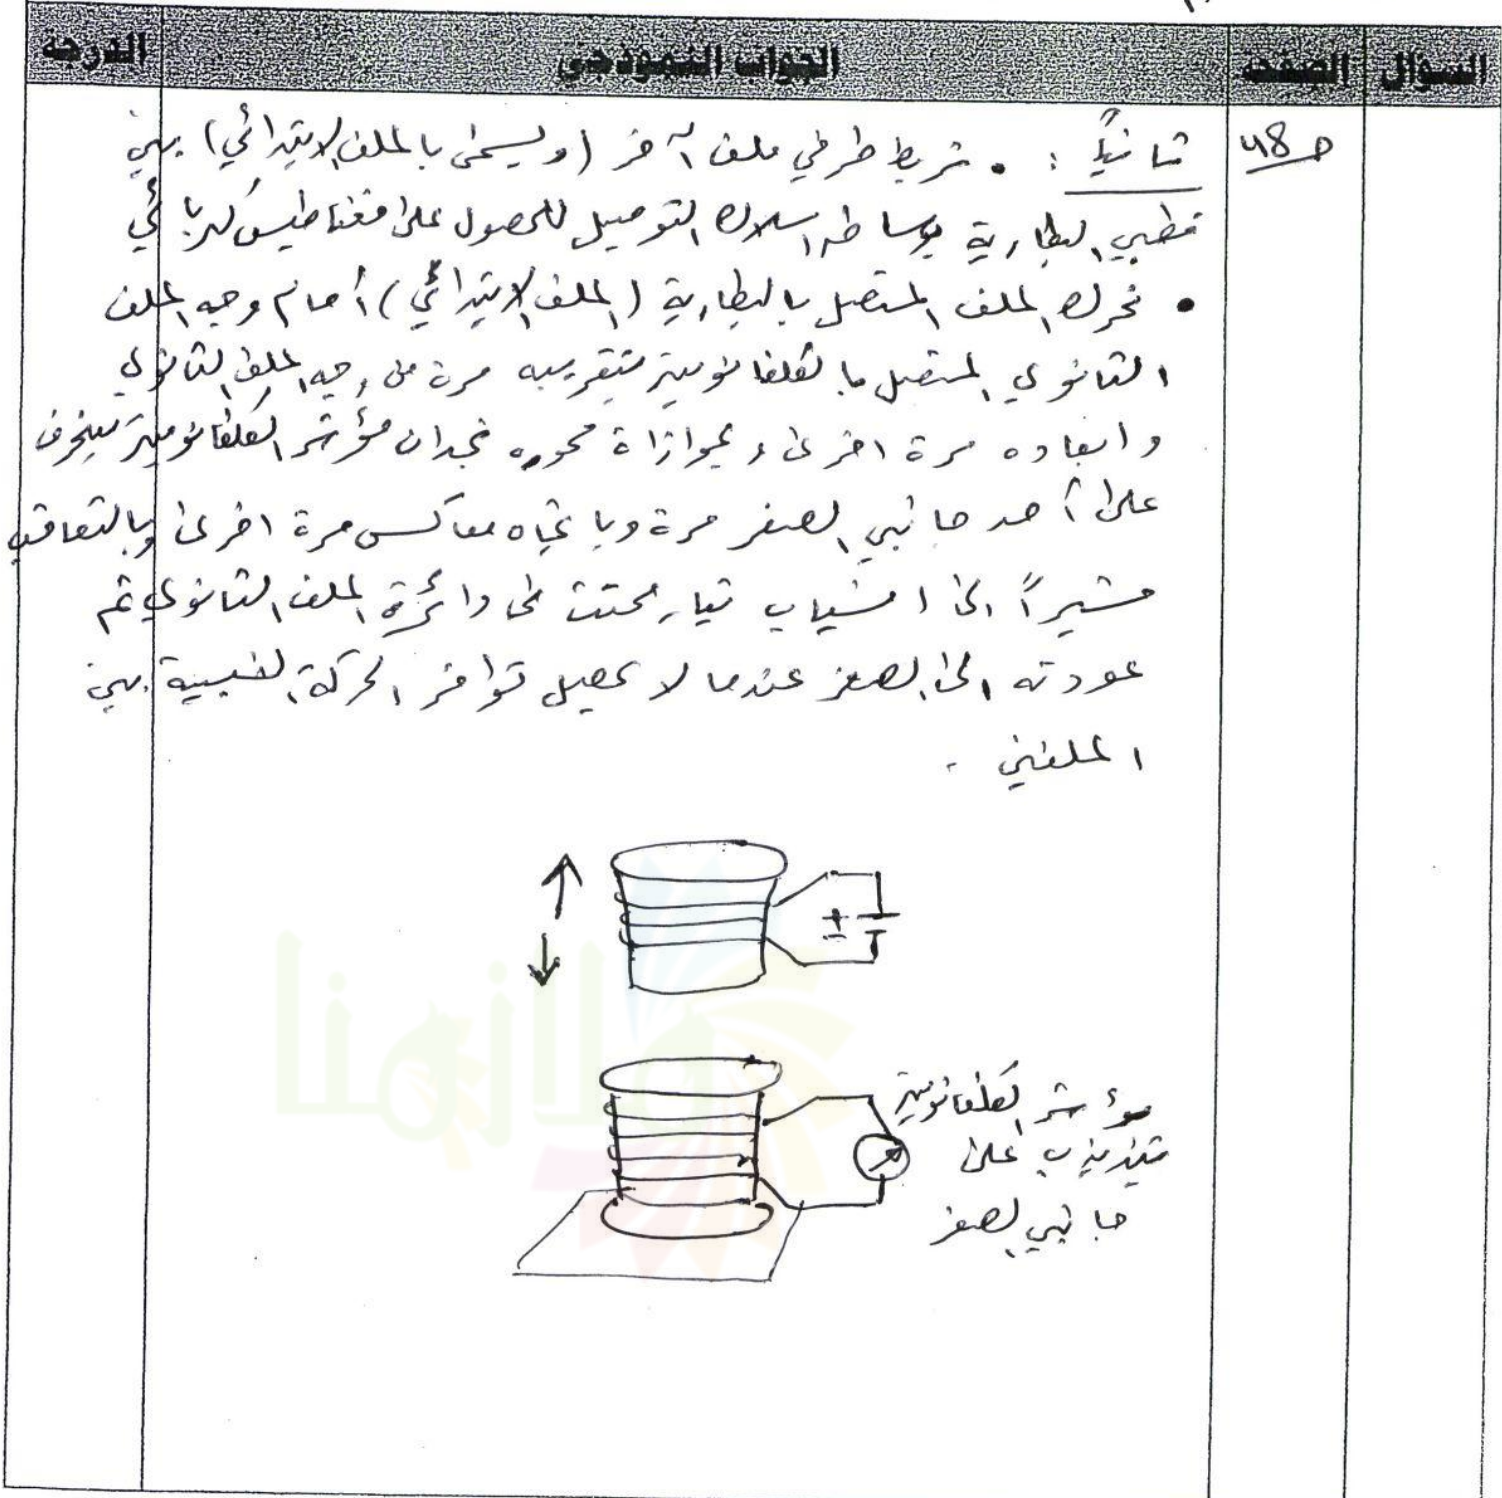 السؤال الصفحة الجواب النموذجي الدرجة
ص48
ثانياً : • نربط طرفي ملف آخر (ويسمى بالملف الابتدائي) بين
قطبي البطارية بوساطة اسلاك التوصيل للحصول على مغناطيس كهربائي
• نحرك الملف المتصل بالبطارية (الملف الابتدائي) أمام وجه الملف
الثانوي المتصل بالكلفانوميتر بتقريبه مرة من وجه الملف الثانوي
وابعاده مرة اخرى وبموازاة محوره نجد ان مؤشر الكلفانوميتر ينحرف
على أحد جانبي الصفر مرة وباتجاه معاكس مرة اخرى وبالتعاقب
مشيراً الى انسياب تيار محتث في دائرة الملف الثانوي ثم
عودته الى الصفر عندما لا يحصل توافر الحركة النسبية بين
الملفين .
+
-
مؤشر الكلفانوميتر
يتذبذب على
جانبي الصفر
ملازمنا